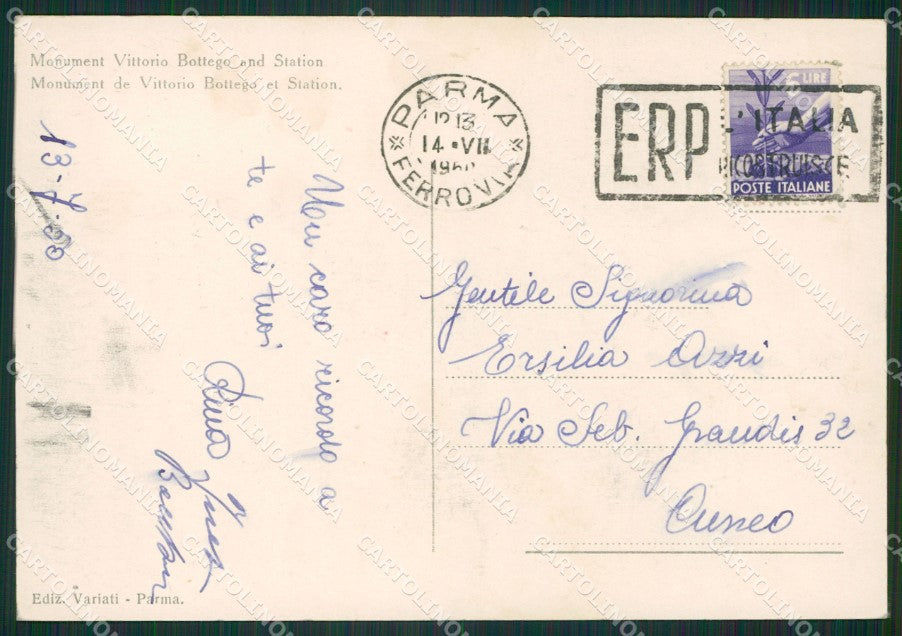 Monument Vittorio Bottego and Station
Monument de Vittorio Bottego et Station.
13-7-50
Un caro ricordo a
te e ai tuoi
Rina
Ines
Ediz. Variati - Parma.
PARMA
12 13
14 • VII
1950
FERROVIA
ERP L'ITALIA
RICOSTRUISCE
5 LIRE
POSTE ITALIANE
Gentile Signorina
Ersilia Azzi
Via Seb. Grandis 32
Cuneo
CARTOLINOMANIA